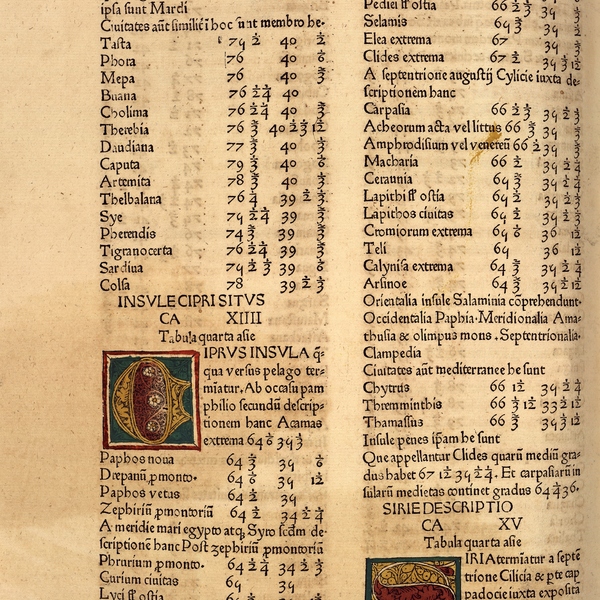 ipsa sunt Mardi
Ciuitates aūt similiť i hoc sunt membro he·
Tasta 74 ½ 40 ½
Phora 76 40 ⅙
Mepa 76 40 ⅔
Buana 76 ½ ¼ 40
Cholima 76 ½ ¼ 40 ⅔
Therebia 76 ⅔ 40 ½ ⅓ 1/12
Daudiana 77 ⅔ 40 ⅓
Caputa 79 ⅓ 40 ⅙
Artemita 78 ⅔ 40 ⅓
Thelbalana 76 ¼ 39 ½ ⅓
Sye 74 ½ ¼ 39 ⅔
Pherendis 74 ⅔ 39 ⅓
Tigranocerta 76 ½ ¼ 39 ⅔
Sardiua 74 ½ ⅓ 39 ⅙
Colsa 78 39 ½ ⅓
INSVLE CIPRI SITVS
CA XIIII
Tabula quarta asie
IPRVS INSVLA q̄-
qua versus pelago ter-
mīatur. Ab occasu pam
philio secundū descrip-
tionem hanc Acamas
extrema 64 ⅙ 34 ⅓
Paphos noua 64 ⅓ 34 ⅙
Drepanū ꝓmonto· 64 ⅙ 34 1/12
Paphos vetus 64 ½ 34
Zephiriū ꝓmontoriū 64 ½ 34 ½ ¼
A meridie mari egypto atq̧ Syro scd̄m de-
scriptionē hanc Post zephiriū ꝓmontoriū
Phrurium ꝓmonto· 64 ½ ¼ 34 ½ ⅓
Curium ciuitas 64 34
Lyci ff ostia
Pediei ff ostia 66 ½ ⅓ 34
Selamis 64 34 ⅔
Elea extrema 67 34 ⅔
Clides extrema 67 ½ 34 ⅓ 1/12
A septentrione augustij Cylicie iuxta de-
scriptionem hanc
Carpasia 66 ½ ⅓ 34 ½ ⅓
Acheorum acta vel littus 66 ⅔ 34 ⅔
Amphrodisium vel venereū 66 ½ 34 ⅔
Macharia 66 34 ½ ¼
Ceraunia 64 ⅔ 34 ½ ¼
Lapithi ff ostia 64 ½ 34 ½ ¼
Lapithos ciuitas 64 ½ 34 ½ ⅓
Cromiorum extrema 64 ⅙ 36 1/12
Teli 64 36 1/12
Calynisa extrema 64 ⅔ 34 ½ ¼
Arsinoe 64 ⅔ 34 ⅓ 1/12
Orientalia insule Salaminia cōprehendunt·
Occidentalia Paphia· Meridionalia Ama-
thusia & olimpus mons · Septentrionalia·
Clampedia
Ciuitates aūt mediterranee he sunt
Chytrus 66 1/12 34 ½ ¼
Thremminthis 66 ⅓ 1/12 33 ½ 1/12
Thamassus 66 ⅔ 34 ⅓ 1/12
Insule penes ip̄am he sunt
Que appellantur Clides quarū mediū gra-
dus habet 67 1/12 34 ½ ¼ · Et carpasiarū in
sularū medietas cōtinet gradus 64 ¼ 36·
SIRIE DESCRIPTIO
CA XV
Tabula quarta asie
IRIA termīatur a septē
trione Cilicia & pte cap
padocie iuxta exposita